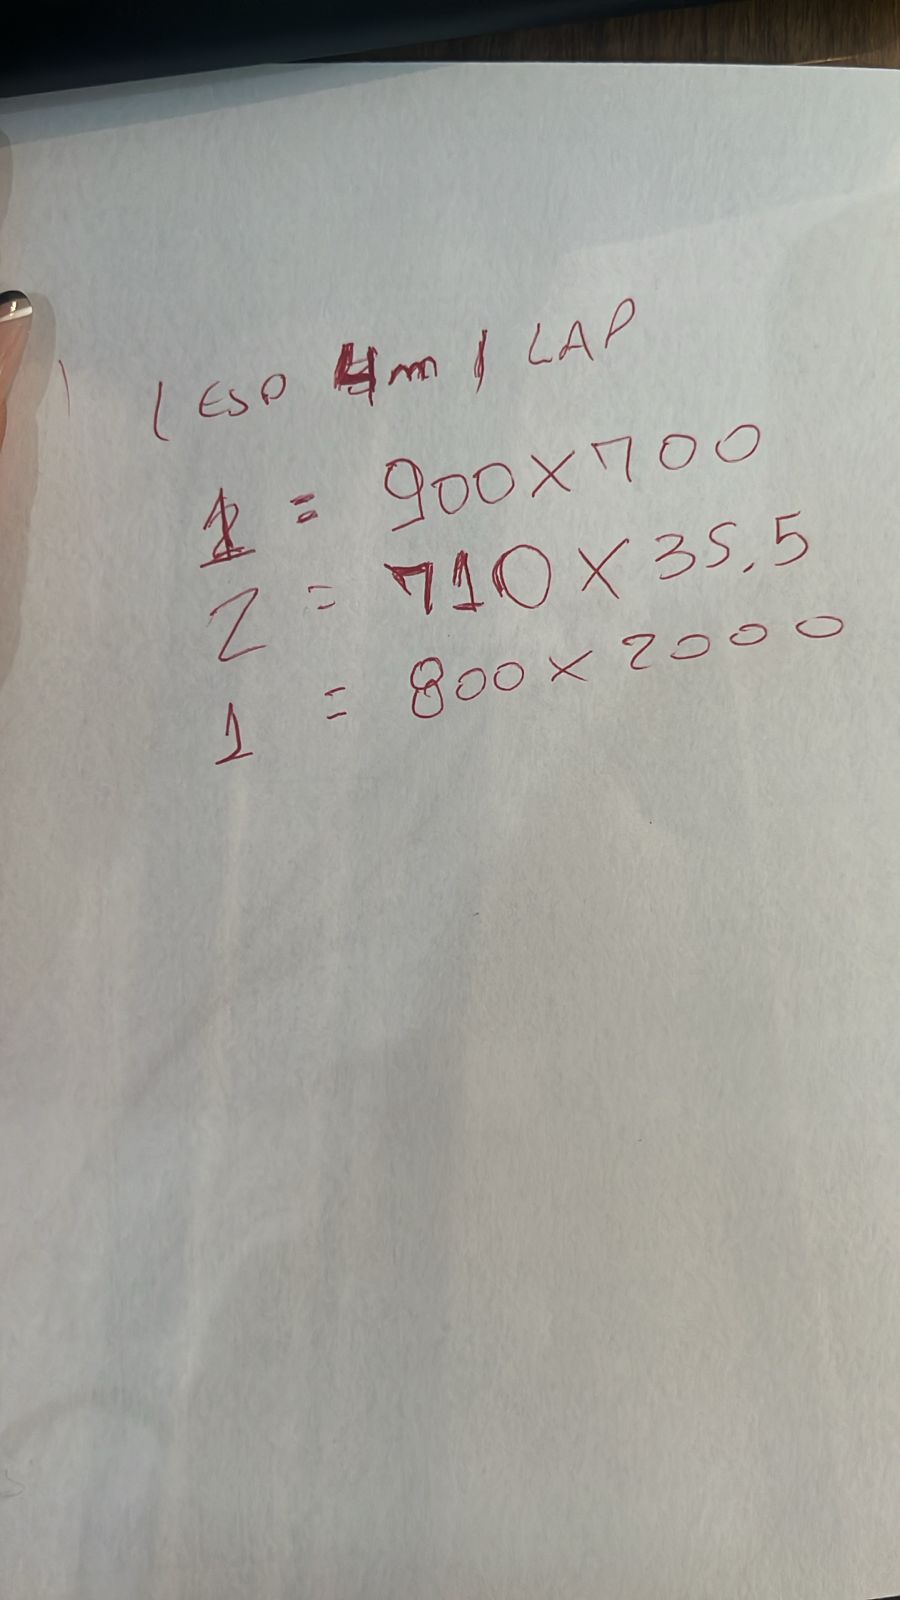 ( ESP 4m / LAP
1 = 900x700
2 = 710 x 35.5
1 = 800x2000